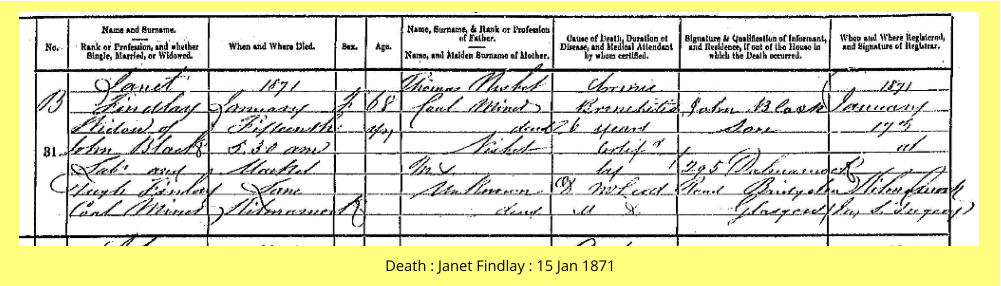 No.
Name and Surname.
Rank or Profession, and whether
Single, Married, or Widowed.
When and Where Died.
Sex.
Age.
Name, Surname, & Rank or Profession
of Father.
Name, and Maiden Surname of Mother.
Cause of Death, Duration of
Disease, and Medical Attendant
by whom certified.
Signature & Qualification of Informant,
and Residence, if out of the House in
which the Death occurred.
When and Where Registered,
and Signature of Registrar.
B
31
Janet
Findlay
Widow of
John Black
Labr and
Hugh Findlay
Coal Miner
1871
January
Fifteenth
5.30 am
Market
Lane
Kilmarnock
F
68
yrs
Thomas Nisbet
Coal Miner
decd
Nisbet
M.S.
Unknown
decd
Chronic
Bronchitis
6 years
Certifd
by
D McLeod
M D
John Black
Son
295 Dalmarnock
Road Bridgeton
Glasgow
1871
January
17th
at
Kilmarnock
Death : Janet Findlay : 15 Jan 1871